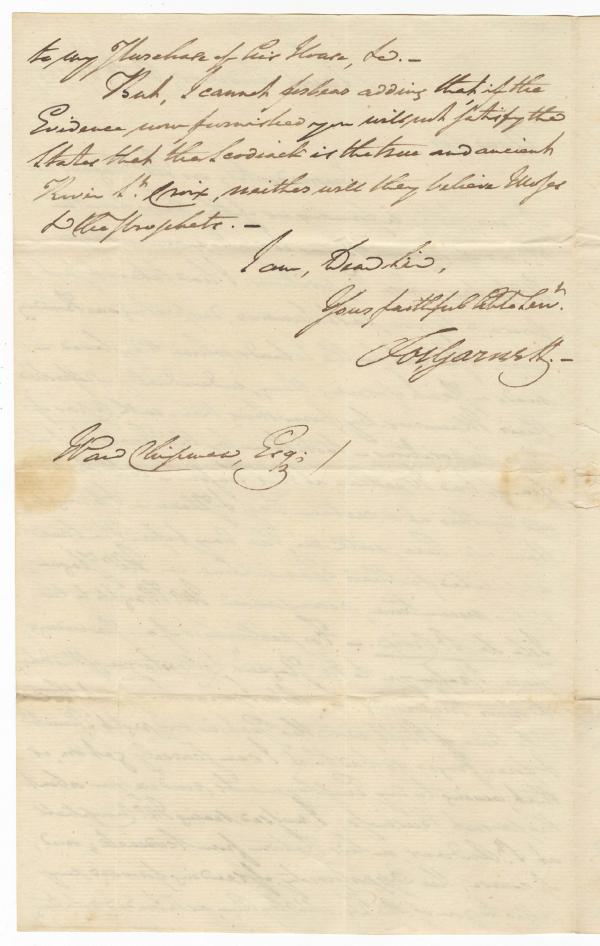 to my Purchase of his House, &c. –
But, I cannot forbear adding that, if the
Evidence now furnished you will not satisfy the
States that the Scodiack is the true and ancient
River St. Croix, neither will they believe Moses
& the Prophets. –
I am, Dear Sir,
Your faithful Obt. Servt.
Jos. Garnett. –
Ward Chipman, Esqr.